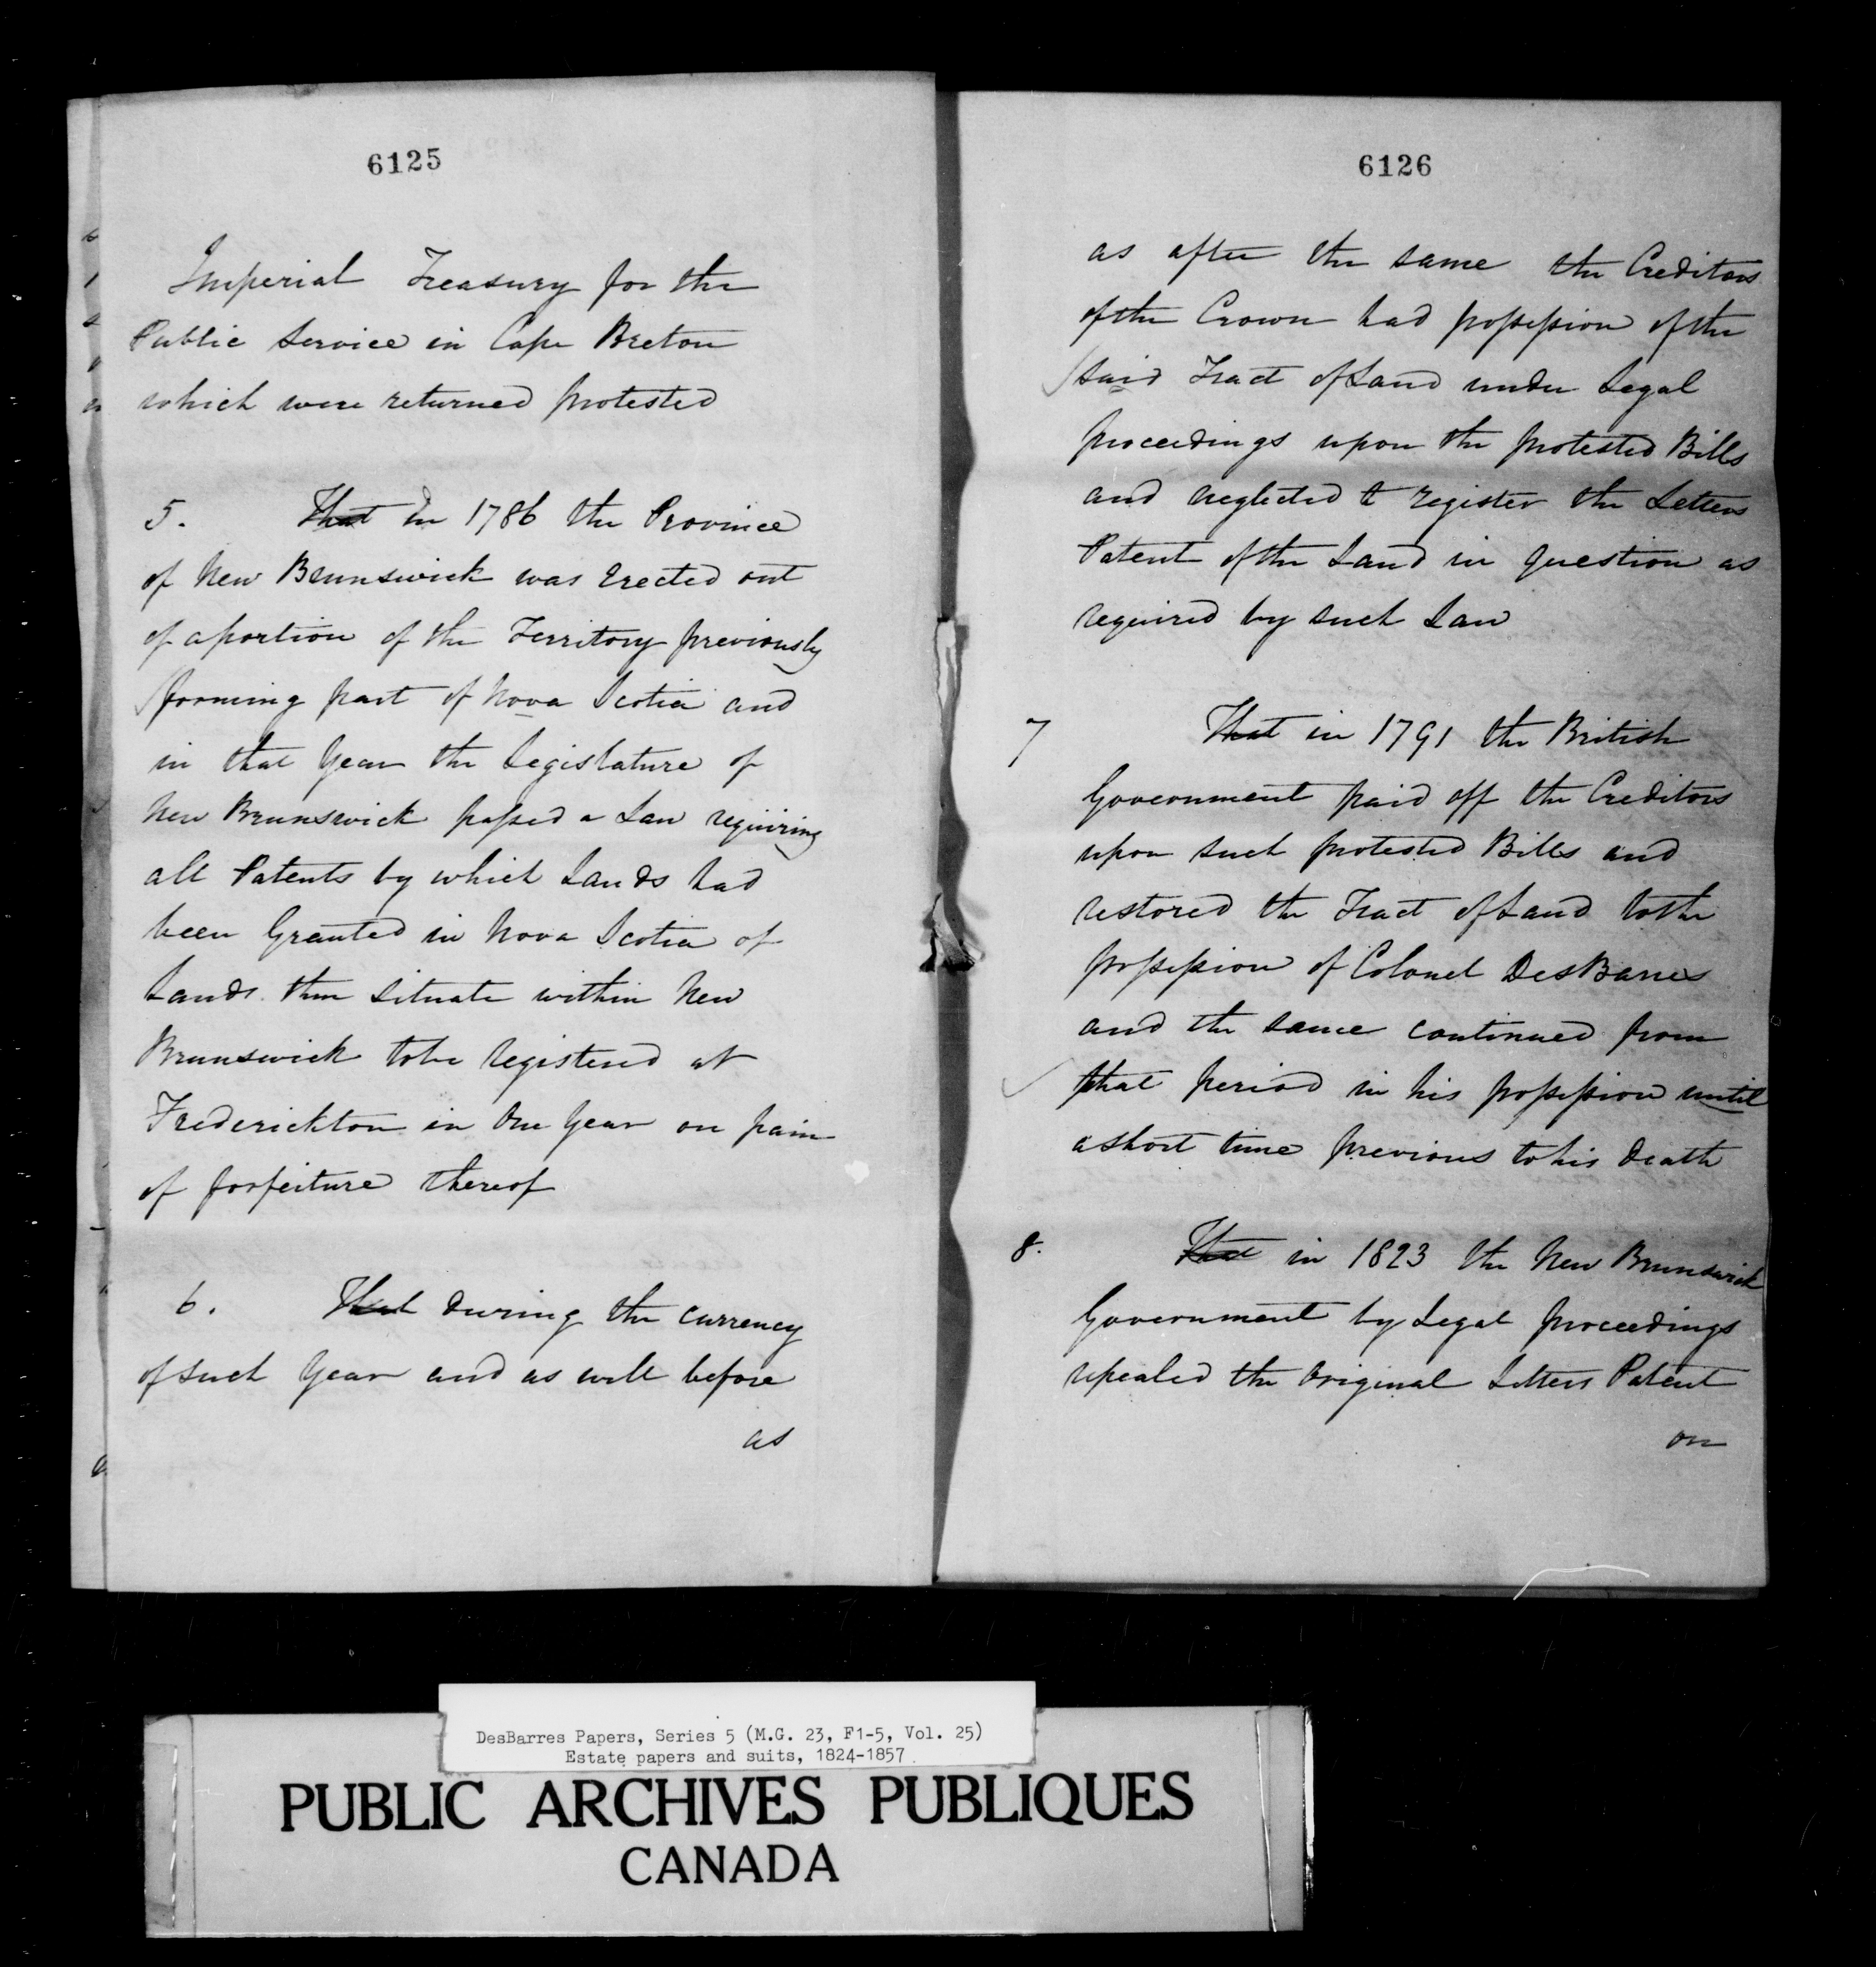 6125
Imperial Treasury for the
Public Service in Cape Breton
which were returned protested
5. That In 1786 the Province
of New Brunswick was Erected out
of a portion of the Territory previously
forming part of Nova Scotia and
in that Year the Legislature of
New Brunswick passed a Law requiring
all Patents by which Lands had
been Granted in Nova Scotia of
Lands then situate within New
Brunswick to be Registered at
Frederickton in One Year on pain
of forfeiture thereof
6. That During the currency
of such Year and as well before
as
6126
as after the same the Creditors
of the Crown had possession of the
said Tract of Land under Legal
proceedings upon the protested Bills
and neglected to register the Letters
Patent of the Land in question as
required by such Law
7 That in 1791 the British
Government paid off the Creditors
upon such protested Bills and
restored the Tract of Land to the
possession of Colonel DesBarres
and the same continued from
that period in his possession until
a short time previous to his Death
8. That in 1823 the New Brunswick
Government by Legal proceedings
repealed the Original Letters Patent
on
DesBarres Papers, Series 5 (M.G. 23, F1-5, Vol. 25)
Estate papers and suits, 1824-1857.
PUBLIC ARCHIVES PUBLIQUES
CANADA